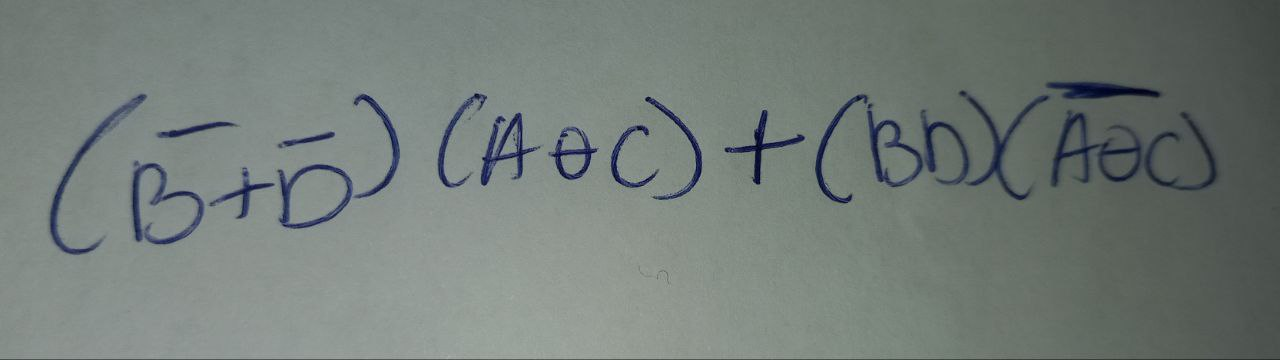 (B̅+D̅)(AθC)+(BD)(A̅θ̅C̅)